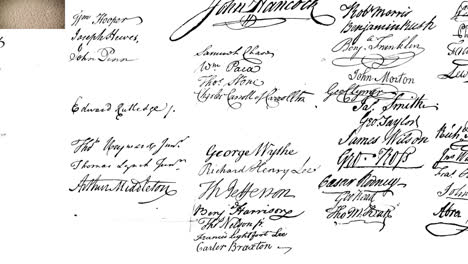 Wm Hooper
Joseph Hewes,
John Penn
Edward Rutledge /.
Thos Heyward Junr.
Thomas Lynch Junr.
Arthur Middleton
John Hancock
Samuel Chase
Wm Paca
Thos Stone
Charles Carroll of Carrollton
George Wythe
Richard Henry Lee
Th Jefferson
Benj Harrison
Thos Nelson jr.
Francis Lightfoot Lee
Carter Braxton
Robt Morris
Benjamin Rush
Benj. Franklin
John Morton
Geo Clymer
Jas. Smith
Geo. Taylor
James Wilson
Geo. Ross
Caesar Rodney
Geo Read
Tho M:Kean
John
Abra